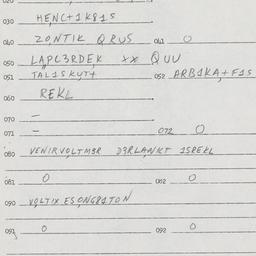 020
030 HENC+1K81S
040 ZONTIK QRUS 041 O
050 LAPL3RDEK xx QUU
051 TAL1SKUT+ 052 ARB1KA+F1S
060 REKL
070 –
071 – 072 O
080 VENIRVOLTM3R D3RLANKT 1SREKL
081 O 082 O
090 VOLTIXESONG81TON
091 O 092 O